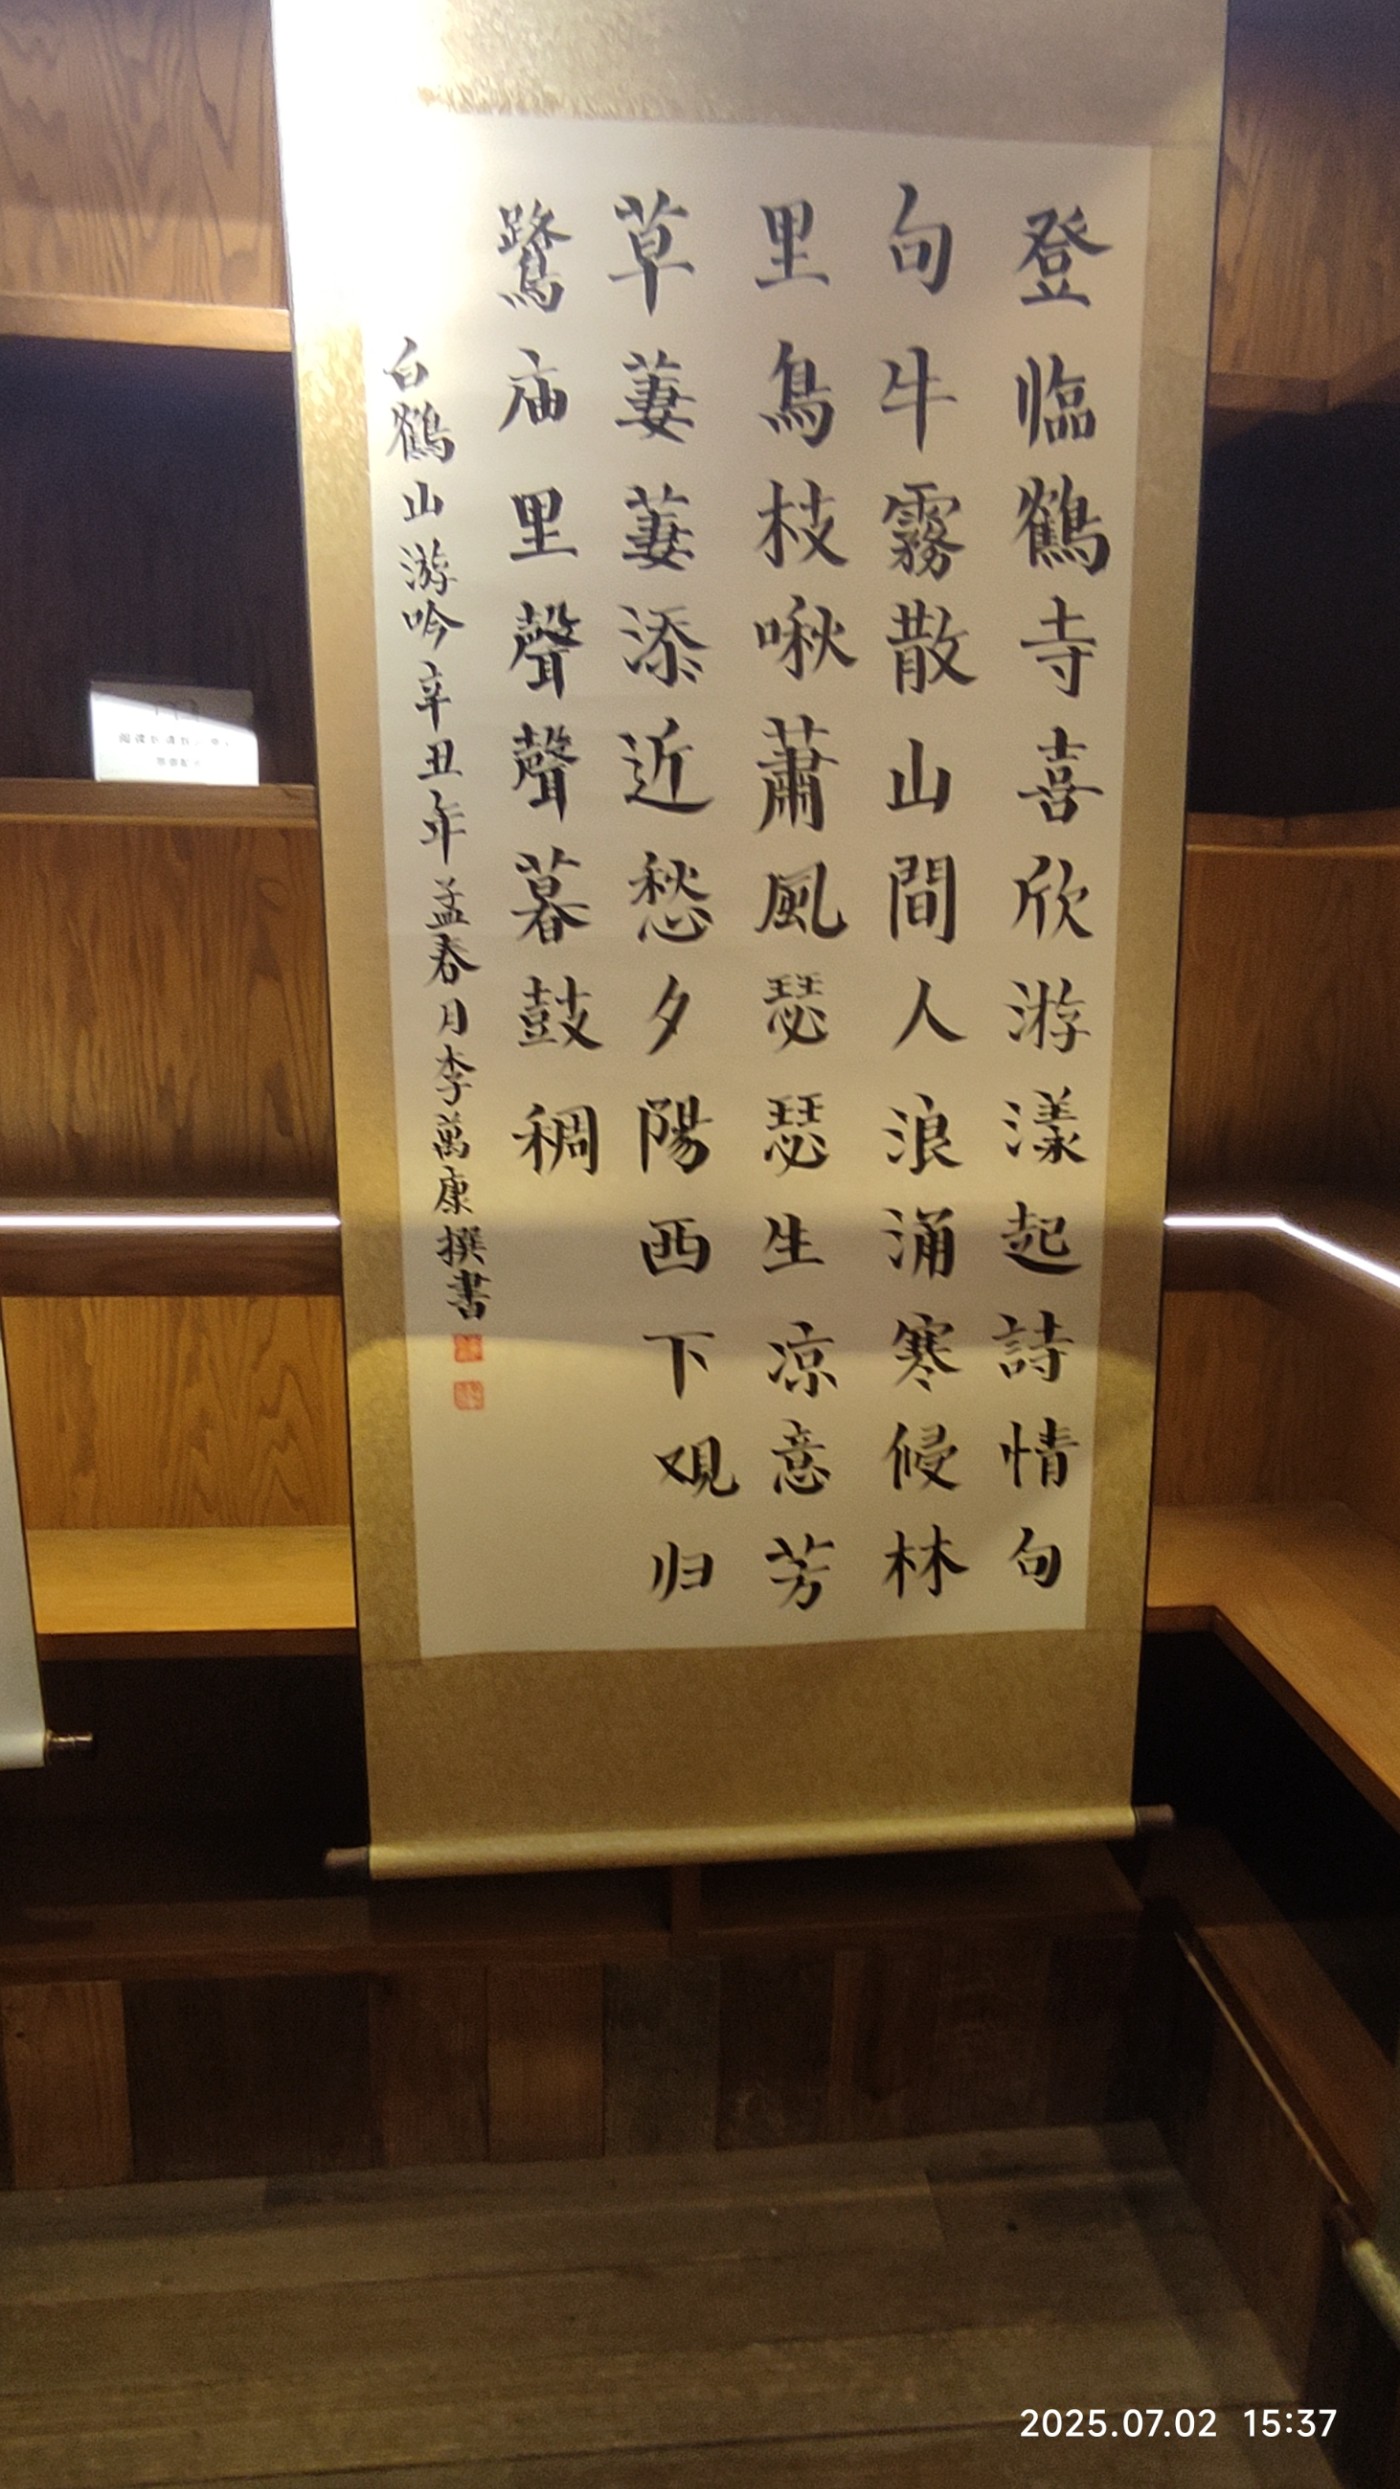 登臨鶴寺喜欣游漾起詩情句
句牛霧散山間人浪涌寒侵林
里鳥枝啾蕭風瑟瑟生凉意芳
草萋萋添近愁夕陽西下观归
鷺庙里聲聲暮鼓稠
白鶴山游吟辛丑年孟春月李萬康撰書
2025.07.02 15:37